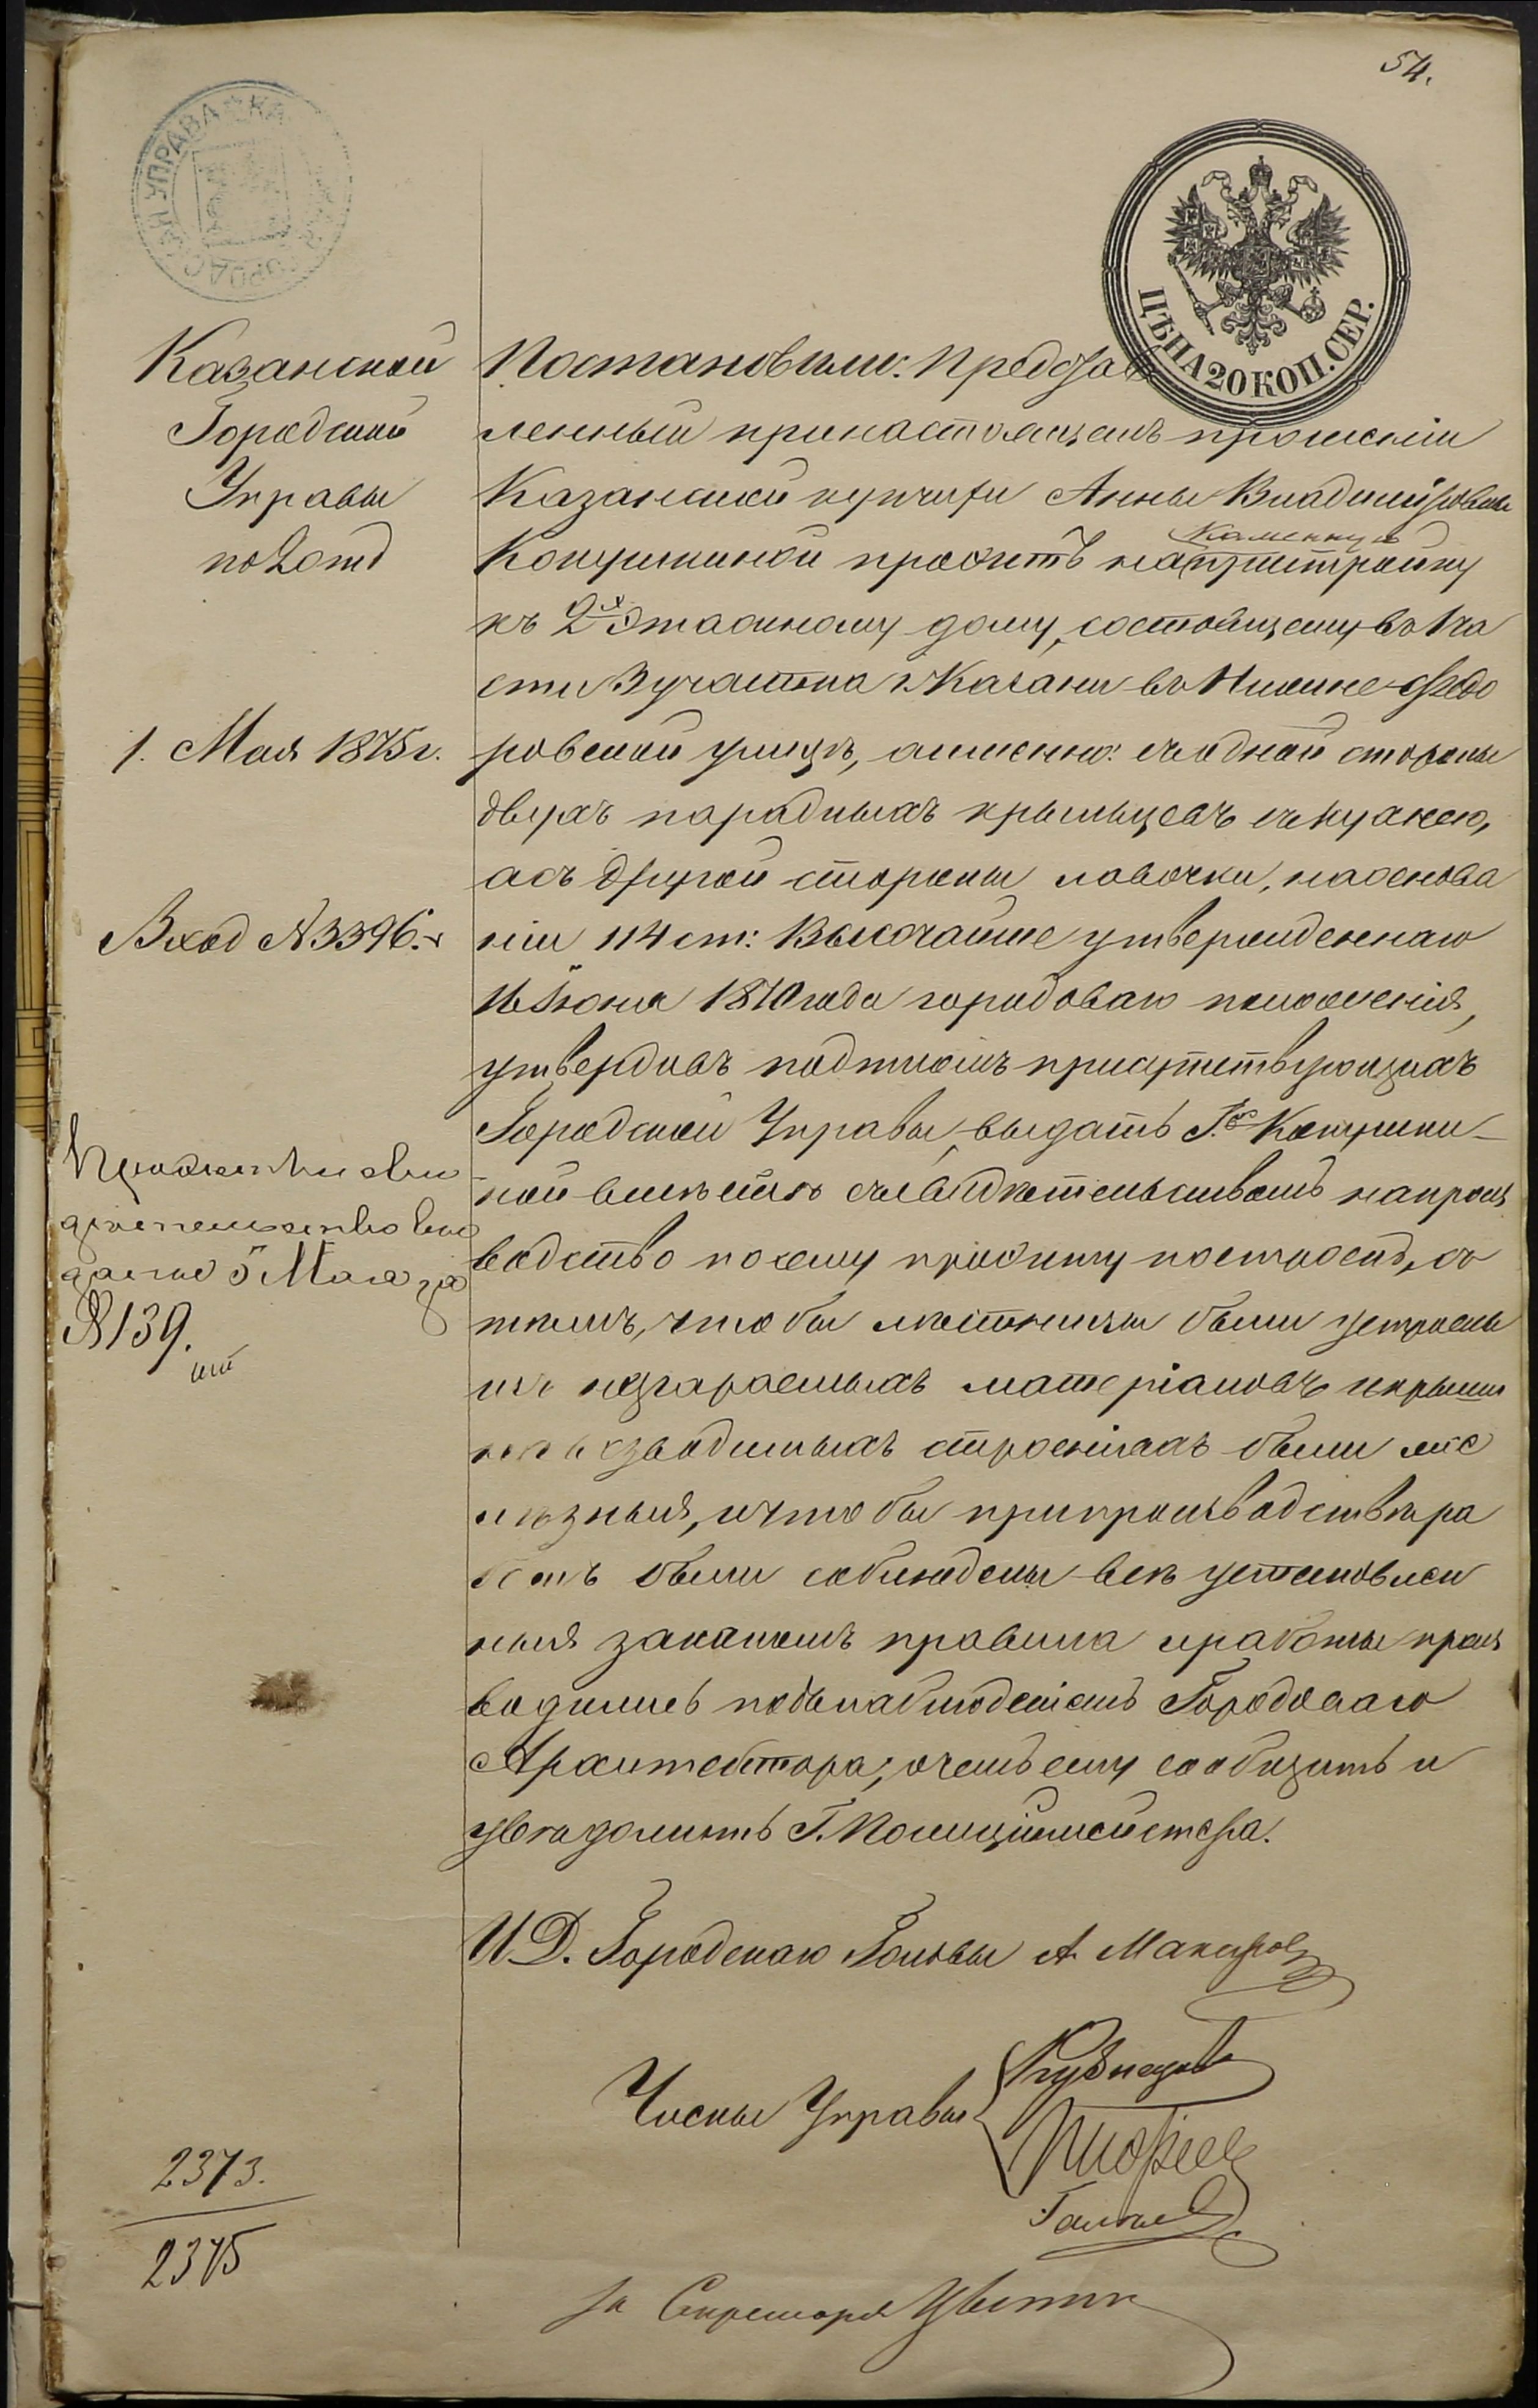 54.
ГОРОДСКАЯ УПРАВА
ЦѢНА 20 КОП. СЕР.
Казанской
Городской
Управы
по 2 отд
1. Мая 1875 г.
Вход № 3396.
Проэктъ и сви
дѣтельство вы
даны 5 Мая за
№ 139.
2373.
2375
Постановили: Представ
ленный при настоящемъ прошеніи
Казанской купчихи Анны Владиміровны
Каменную
Кокушкиной проэктъ на пристройку
къ 2х этажному дому, состоящему въ 1 ча
сти 3 участка г. Казани въ Нижне-Федо
ровской улицѣ, а именно: съ одной стороны
двухъ парадныхъ крылецъ съ кухнею,
а съ другой стороны лавочки, на основа
ніи 114 ст: Высочайше утвержденнаго
16 Іюня 1870 года городоваго положенія,
утвердивъ подписомъ присутствующихъ
Городской Управы, выдать Г.жѣ Кокушки-
ной вмѣстѣ съ свидѣтельствомъ на произ
водство по сему проэкту построекъ, съ
тѣмъ, чтобы лѣстницы были устроены
изъ несгараемыхъ матеріаловъ и крыши
на возводимыхъ строеніяхъ были же
лѣзныя, и чтобы при производствѣ ра
ботъ были соблюдены всѣ установлен
ныя закономъ правила и работы произ
водились подъ наблюденіемъ Городоваго
Архитектора; о чемъ ему сообщить и
увѣдомить Г. Полиціймейстера.
И.Д. Городскаго Головы А. Макаровъ
Члены Управы
Кузнецовъ
За Секретаря